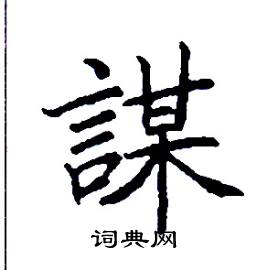 謀
词典网